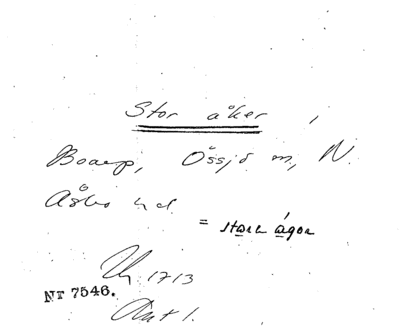 Stor åker,
Boarp, Össjö sn, N.
Åsbo hd.
= stora ågor
1713
NT 7546.
Akt 1.